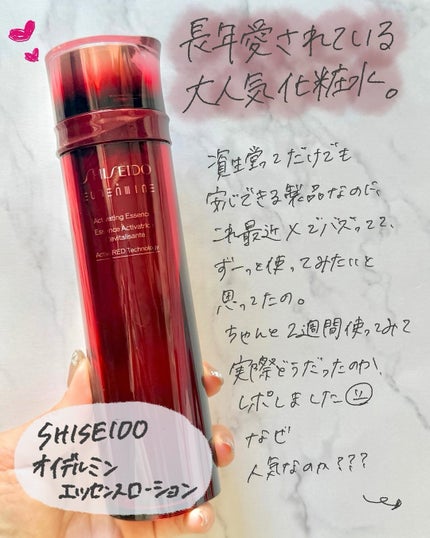 長年愛されている
大人気化粧水。
資生堂ってだけでも
安心できる製品なのに、
これ最近Xでバズってて、
ずーっと使ってみたいと
思ってたの。
ちゃんと2週間使ってみて
実際どうだったのか、
レポしました
なぜ
人気なのか???
SHISEIDO
EUDERMINE
Activating Essence
Essence Activatrice
Revitalisante
Active RED Technology
SHISEIDO
オイデルミン
エッセンスローション